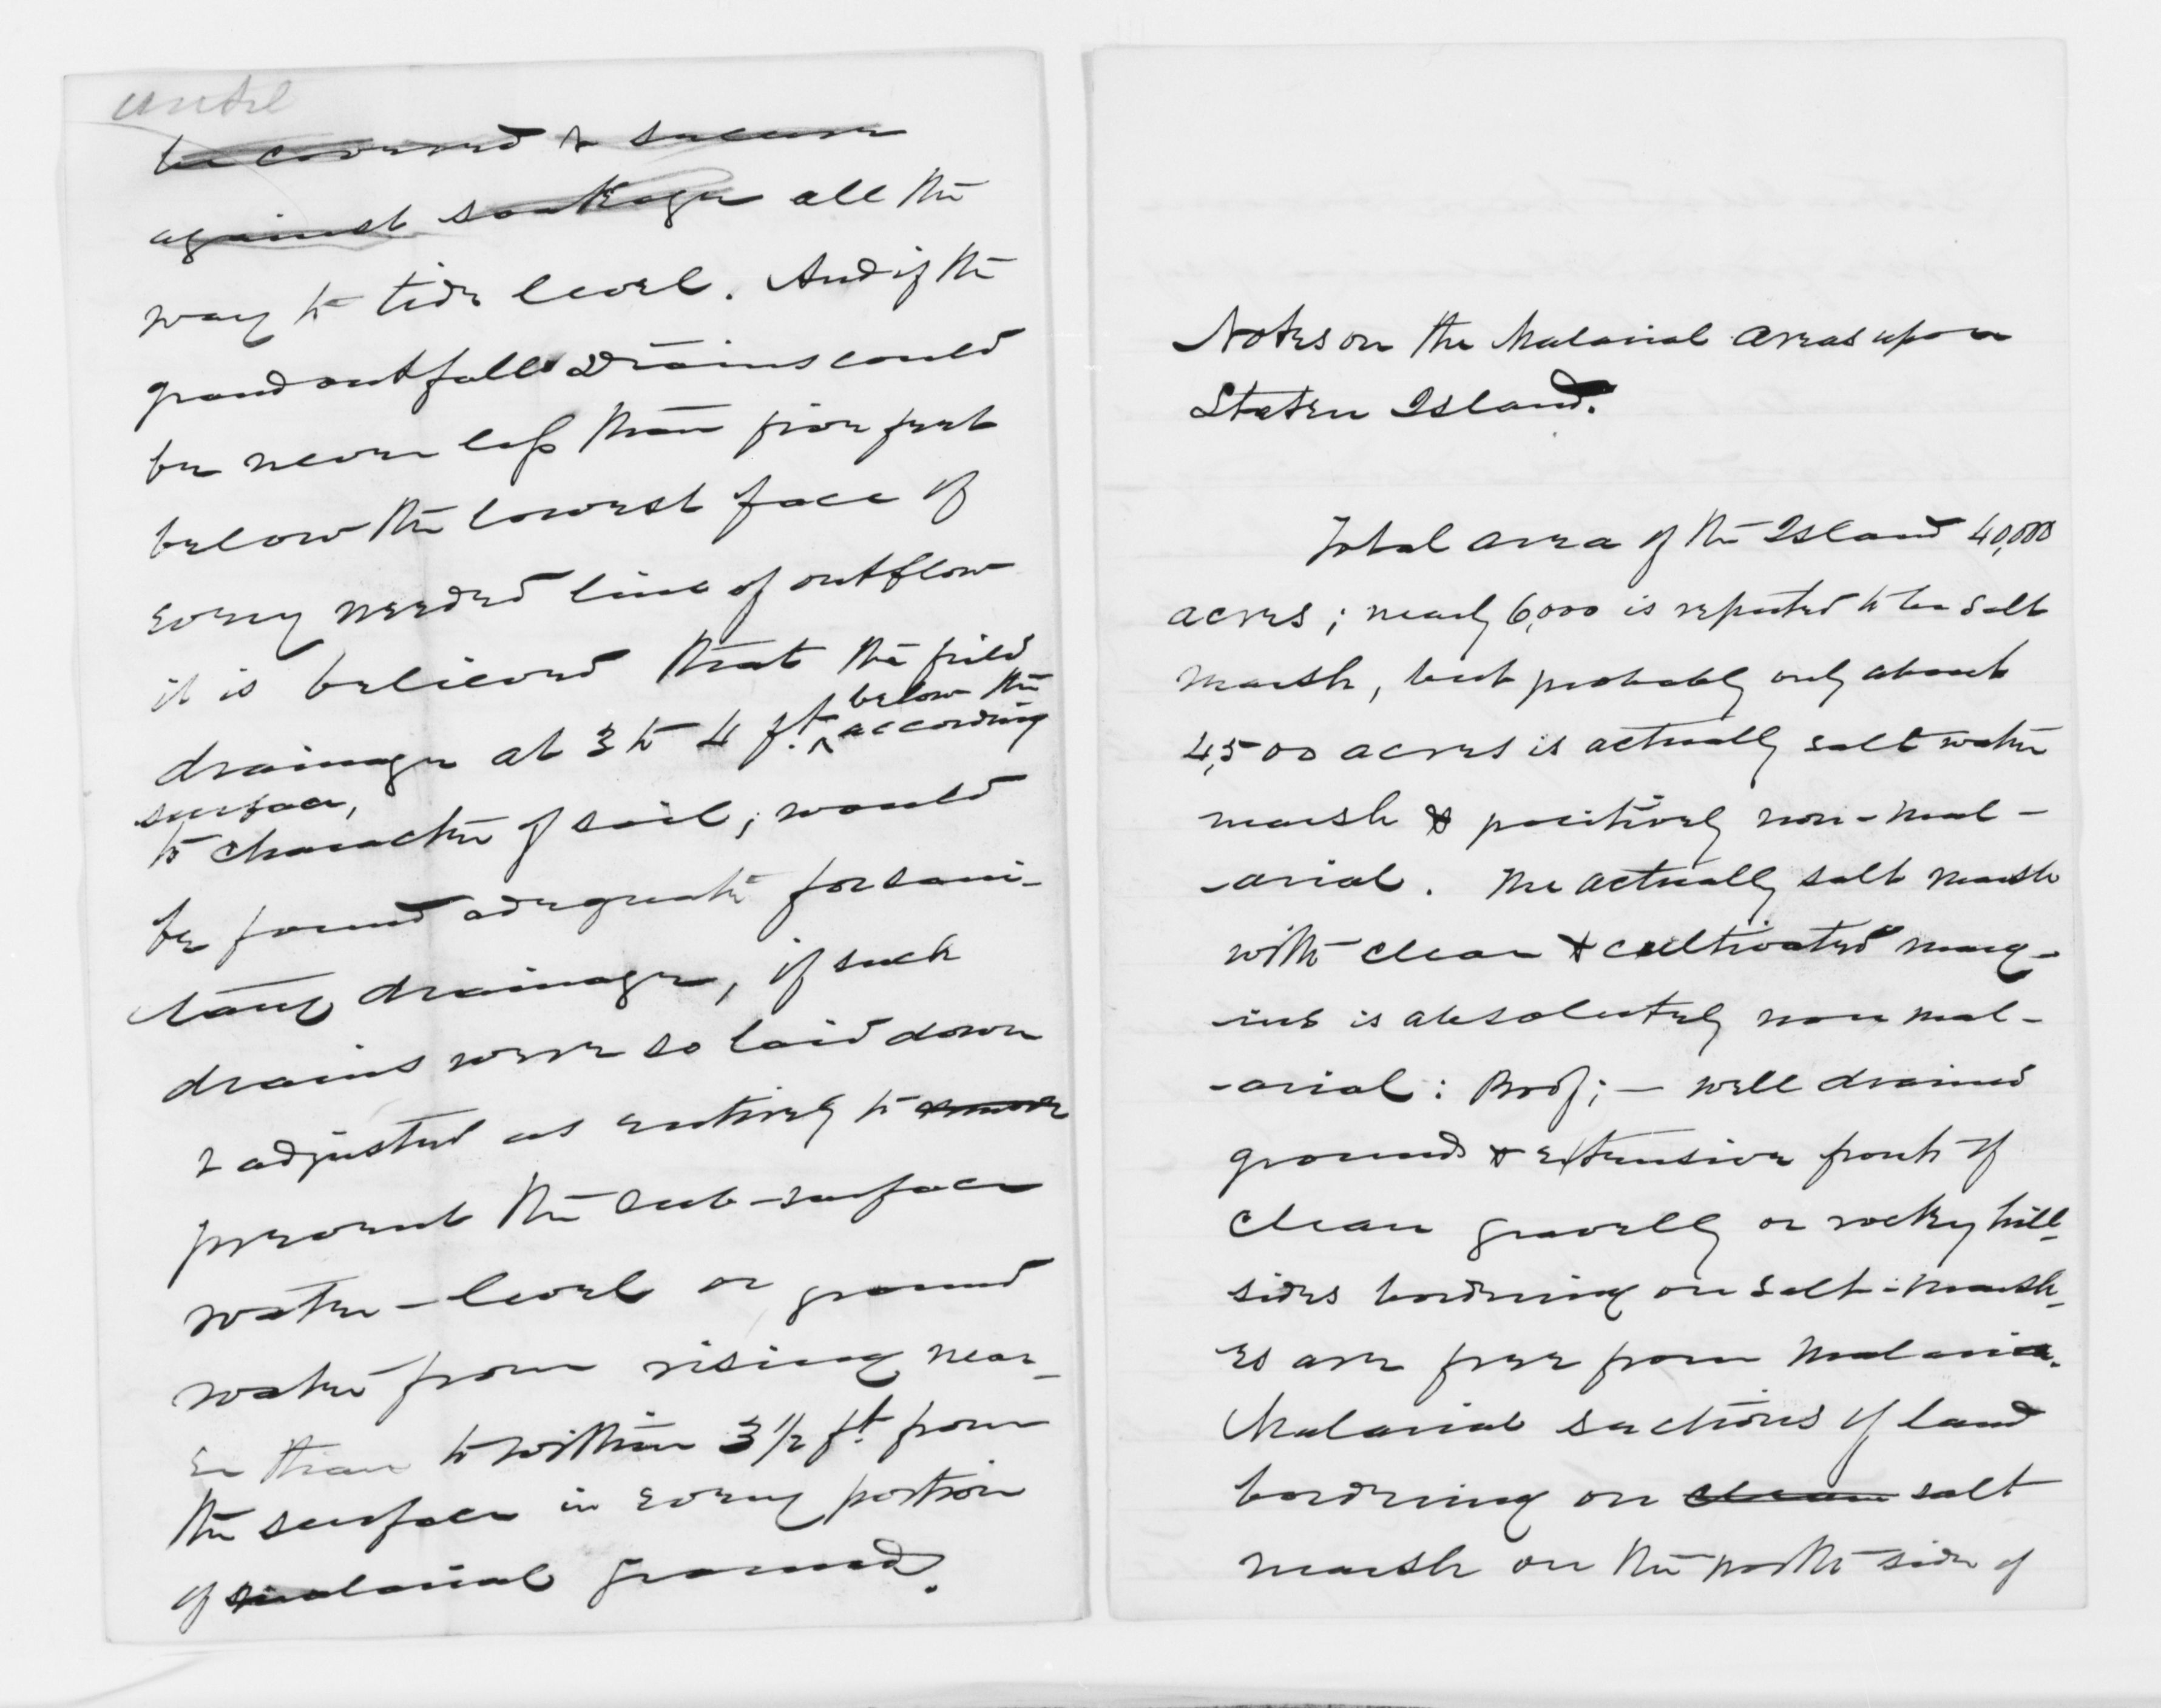 until
be covered & secure
against soakage all the
way to tide level. And if the
grand outfall drains could
be never less than five feet
below the lowest face of
every needed line of outflow
it is believed that the field
drainage at 3 to 4 ft. below the
surface, according
to character of soil, would
be found adequate for sani-
tary drainage, if such
drains were so laid down
& adjusted as entirely to
prevent the sub-surface
water-level or ground
water from rising near-
er than to within 3 1/2 ft. from
the surface in every portion
of malarial ground.
Notes on the Malarial areas upon
Staten Island.
Total area of the Island 40,000
acres; nearly 6,000 is reputed to be salt
marsh, but probably only about
4,500 acres is actually salt water
marsh & positively non-mal-
-arial. The actually salt marsh
with clean & cultivated marg-
-ins is absolutely non mal-
-arial: Prof; — well drained
grounds & extensive fronts of
clean gravelly or rocky hill-
sides bordring on salt-marsh-
es are free from malaria.
Malarial sections of land
bordring on clean salt
marsh on the north side of